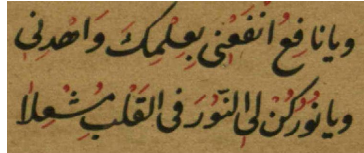 ويانافِعُ انفَعْنِى بِعِلْمِكَ وَاهْدِنِى
ويانُورُ كُنْ لِى النُّورَ فِى القَلْبِ مُشْعِلَا